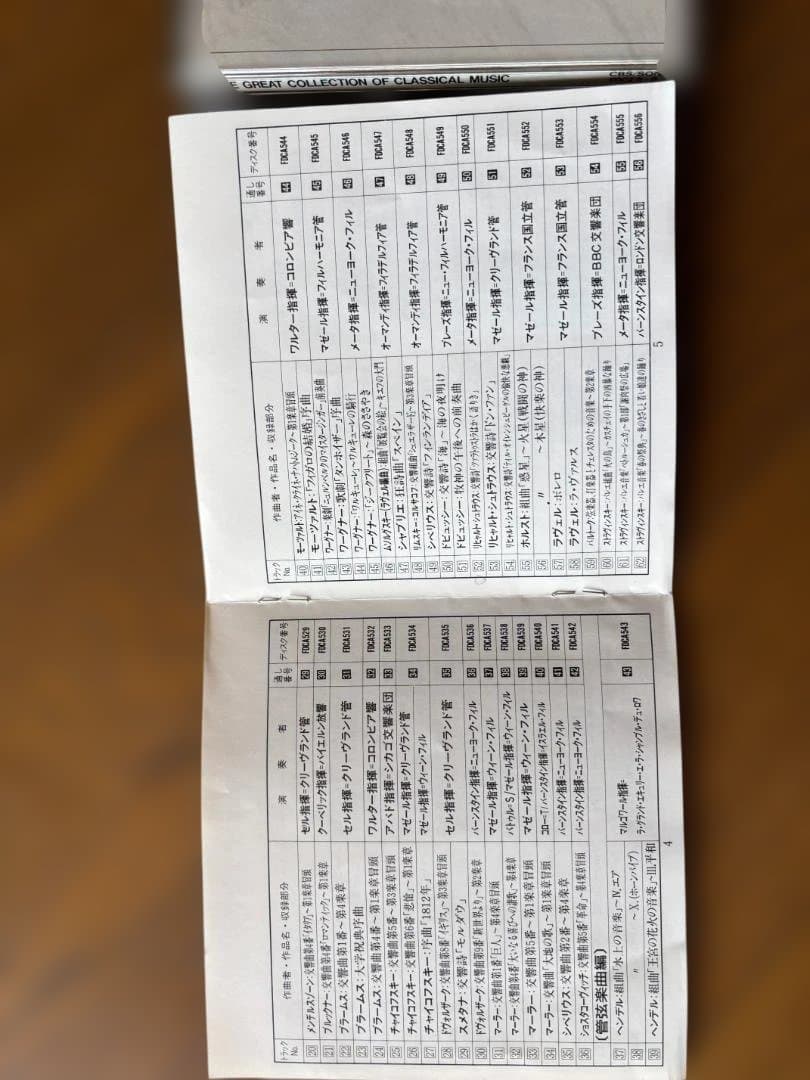 E GREAT COLLECTION OF CLASSICAL MUSIC
CBS/SO
トラックNo. 作曲者・作品名・収録部分 演奏者 通し番号 ディスク番号
20 メンデルスゾーン:交響曲第4番「イタリア」~第1楽章冒頭 セル指揮=クリーヴランド管 29 FDCA529
21 ブルックナー:交響曲第4番「ロマンティック」~第1楽章 クーベリック指揮=バイエルン放響 30 FDCA530
22 ブラームス:交響曲第1番~第4楽章 セル指揮=クリーヴランド管 31 FDCA531
23 ブラームス:大学祝典序曲
24 ブラームス:交響曲第4番~第1楽章冒頭 ワルター指揮=コロンビア響 32 FDCA532
25 チャイコフスキー:交響曲第5番~第3楽章冒頭 アバド指揮=シカゴ交響楽団 33 FDCA533
26 チャイコフスキー:交響曲第6番「悲愴」~第1楽章 マゼール指揮=クリーヴランド管 34 FDCA534
27 チャイコフスキー:序曲「1812年」 マゼール指揮=ウィーン・フィル
28 ドヴォルザーク:交響曲第8番「イギリス」~第3楽章冒頭 セル指揮=クリーヴランド管 35 FDCA535
29 スメタナ:交響詩「モルダウ」
30 ドヴォルザーク:交響曲第9番「新世界より」~第2楽章 バーンスタイン指揮=ニューヨーク・フィル 36 FDCA536
31 マーラー:交響曲第1番「巨人」~第4楽章冒頭 マゼール指揮=ウィーン・フィル 37 FDCA537
32 マーラー:交響曲第4番「大いなる喜びへの讃歌」~第4楽章 バトゥル=S/マゼール指揮=ウィーン・フィル 38 FDCA538
33 マーラー:交響曲第5番~第1楽章冒頭 マゼール指揮=ウィーン・フィル 39 FDCA539
34 マーラー:交響曲「大地の歌」~第1楽章冒頭 コロー=T/バーンスタイン指揮=イスラエル・フィル 40 FDCA540
35 シベリウス:交響曲第2番~第4楽章 バーンスタイン指揮=ニューヨーク・フィル 41 FDCA541
36 ショスタコーヴィッチ:交響曲第5番「革命」~第4楽章冒頭 バーンスタイン指揮=ニューヨーク・フィル 42 FDCA542
〔管弦楽曲編〕
37 ヘンデル:組曲「水上の音楽」~Ⅳ.エア マルゴワール指揮= 43 FDCA543
38 〃 ~Ⅹ.(ホーンパイプ) ラ・グランド・エキュリー・エ・ラ・シャンブル・デュ・ロワ
39 ヘンデル:組曲「王宮の花火の音楽」~Ⅲ.平和
4
トラックNo. 作曲者・作品名・収録部分 演奏者 通し番号 ディスク番号
40 モーツァルト:アイネ・クライネ・ナハトムジーク~第1楽章冒頭 ワルター指揮=コロンビア響 44 FDCA544
41 モーツァルト:「フィガロの結婚」序曲
42 ワーグナー:楽劇「ニュルンベルクのマイスタージンガー」前奏曲 マゼール指揮=フィルハーモニア管 45 FDCA545
43 ワーグナー:歌劇「タンホイザー」序曲
44 ワーグナー:「ワルキューレ」~ワルキューレの騎行 メータ指揮=ニューヨーク・フィル 46 FDCA546
45 ワーグナー:「ジークフリート」~森のささやき
46 ムソルグスキー(ラヴェル編曲):組曲「展覧会の絵」~キエフの大門 オーマンディ指揮=フィラデルフィア管 47 FDCA547
47 シャブリエ:狂詩曲「スペイン」
48 リムスキー=コルサコフ:交響組曲「シェエラザード」~第3楽章冒頭 オーマンディ指揮=フィラデルフィア管 48 FDCA548
49 シベリウス:交響詩「フィンランディア」
50 ドビュッシー:交響詩「海」~海の夜明け ブレーズ指揮=ニュー・フィルハーモニア管 49 FDCA549
51 ドビュッシー:牧神の午後への前奏曲
52 リヒャルト・シュトラウス:交響詩「ツァラトゥストラはかく語りき」 メータ指揮=ニューヨーク・フィル 50 FDCA550
53 リヒャルト・シュトラウス:交響詩「ドン・ファン」 マゼール指揮=クリーヴランド管 51 FDCA551
54 リヒャルト・シュトラウス:交響詩「ティル・オイレンシュピーゲルの愉快な悪戯」
55 ホルスト:組曲「惑星」~火星(戦闘の神) マゼール指揮=フランス国立管 52 FDCA552
56 〃 ~木星(快楽の神)
57 ラヴェル:ボレロ マゼール指揮=フランス国立管 53 FDCA553
58 ラヴェル:ラ・ヴァルス
59 バルトーク:弦楽器、打楽器とチェレスタのための音楽~第2楽章 ブレーズ指揮=BBC交響楽団 54 FDCA554
60 ストラヴィンスキー:バレエ組曲「火の鳥」~カスチェイの手下の凶暴な踊り
61 ストラヴィンスキー:バレエ音楽「ペトルーシュカ」~第1部「謝肉祭の広場」 メータ指揮=ニューヨーク・フィル 55 FDCA555
62 ストラヴィンスキー:バレエ音楽「春の祭典」~春のきざしと若い娘達の踊り バーンスタイン指揮=ロンドン交響楽団 56 FDCA556
5